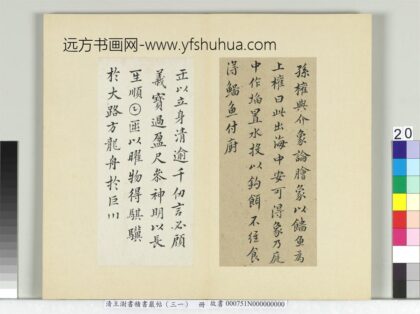 远方书画网-www.yfshuhua.com
孫權與介象論膾象以鯔魚為
上權曰此出海中安可得象乃庭
中作塪置水投以鈎餌不徑食
淂鯔魚付厨
正以立身清逾千仞言必顧
義寶過盈尺叅神明以長
生順以曜物得騏驥
於大路方龍舟於巨川
20
清王澍書積書巖帖(三一) 冊 故書 000751N000000000